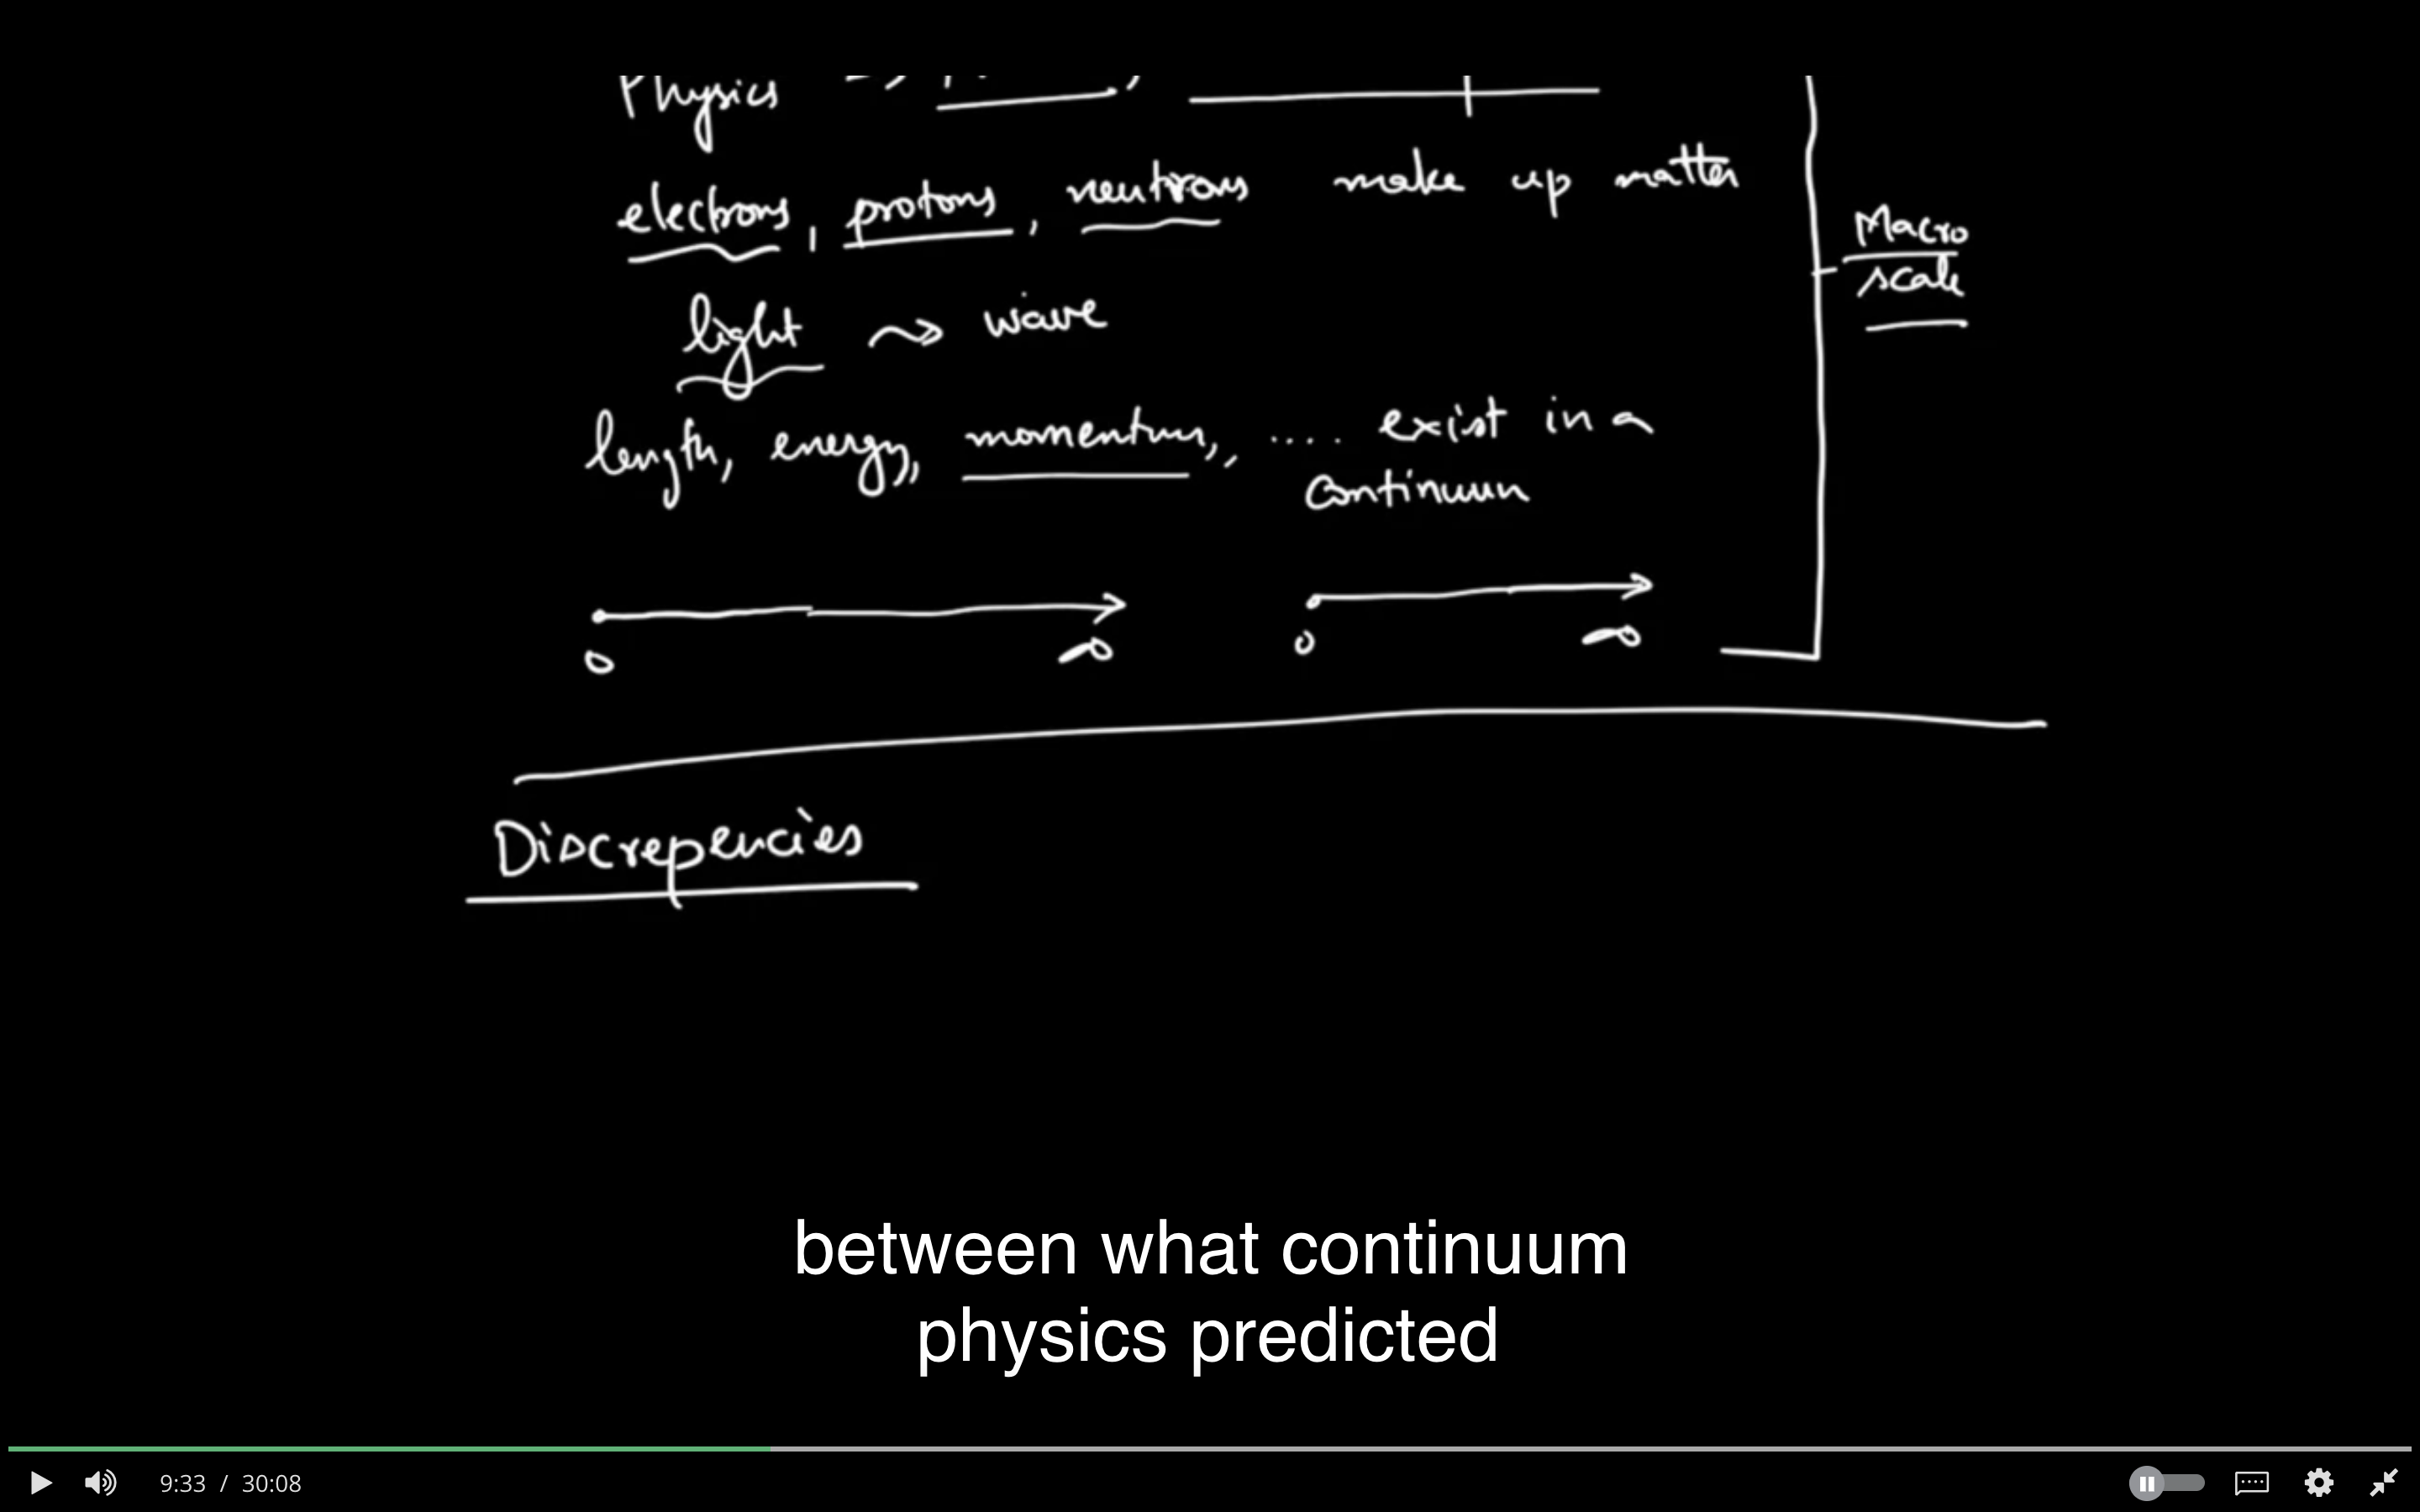 Physics
electrons, protons, neutrons make up matter
Macro
scale
light ~> wave
length, energy, momentum, .... exist in a
continuum
0 ∞ 0 ∞
Discrepencies
between what continuum
physics predicted
9:33 / 30:08